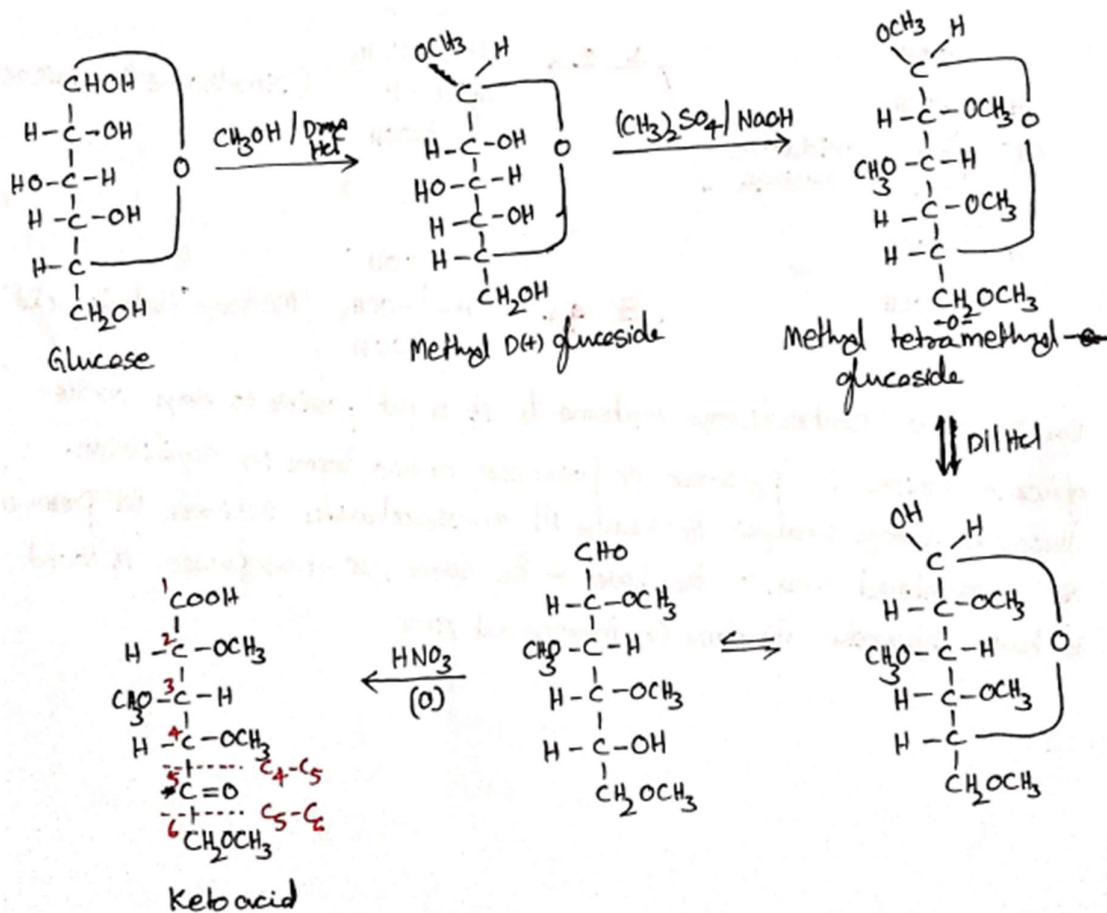 CHOH
H-C-OH
HO-C-H
H-C-OH
H-C
CH2OH
O
Glucose
CH3OH / Dry HCl
OCH3 H
C
H-C-OH
HO-C-H
H-C-OH
H-C
CH2OH
O
Methyl D(+) glucoside
(CH3)2SO4 / NaOH
OCH3 H
C
H-C-OCH3
CH3O-C-H
H-C-OCH3
H-C
CH2OCH3
O
Methyl tetra-O-methyl
glucoside
Dil HCl
OH H
C
H-C-OCH3
CH3O-C-H
H-C-OCH3
H-C
CH2OCH3
O
CHO
H-C-OCH3
CH3O-C-H
H-C-OCH3
H-C-OH
CH2OCH3
HNO3
(O)
1 COOH
H-2C-OCH3
CH3O-3C-H
H-4C-OCH3
C4-C5
5C=O
C5-C6
6 CH2OCH3
Keto acid